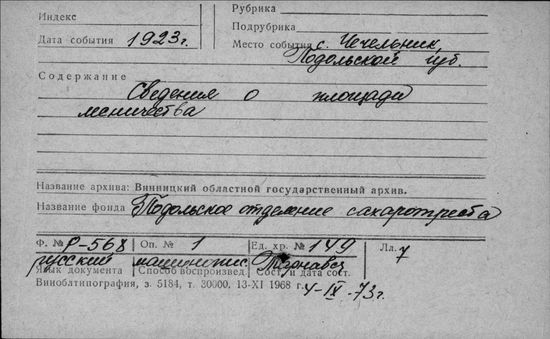 Индекс
Рубрика
Подрубрика
Дата события 1923 г.
Место события с. Чечельник,
Подольской губ.
Содержание
Сведения о площади
лесничества
Название архива: Винницкий областной государственный архив.
Название фонда Подольское отделение сахаротреста
Ф. № Р-568 Оп. № 1 Ед. хр. № 149 Лл. 7
русский машинопис.
Язык документа Способ воспроизвед. Сост. и дата сост.
Виноблтипография, з. 5184, т. 30000. 13-XI 1968 г. 4-IX-73 г.